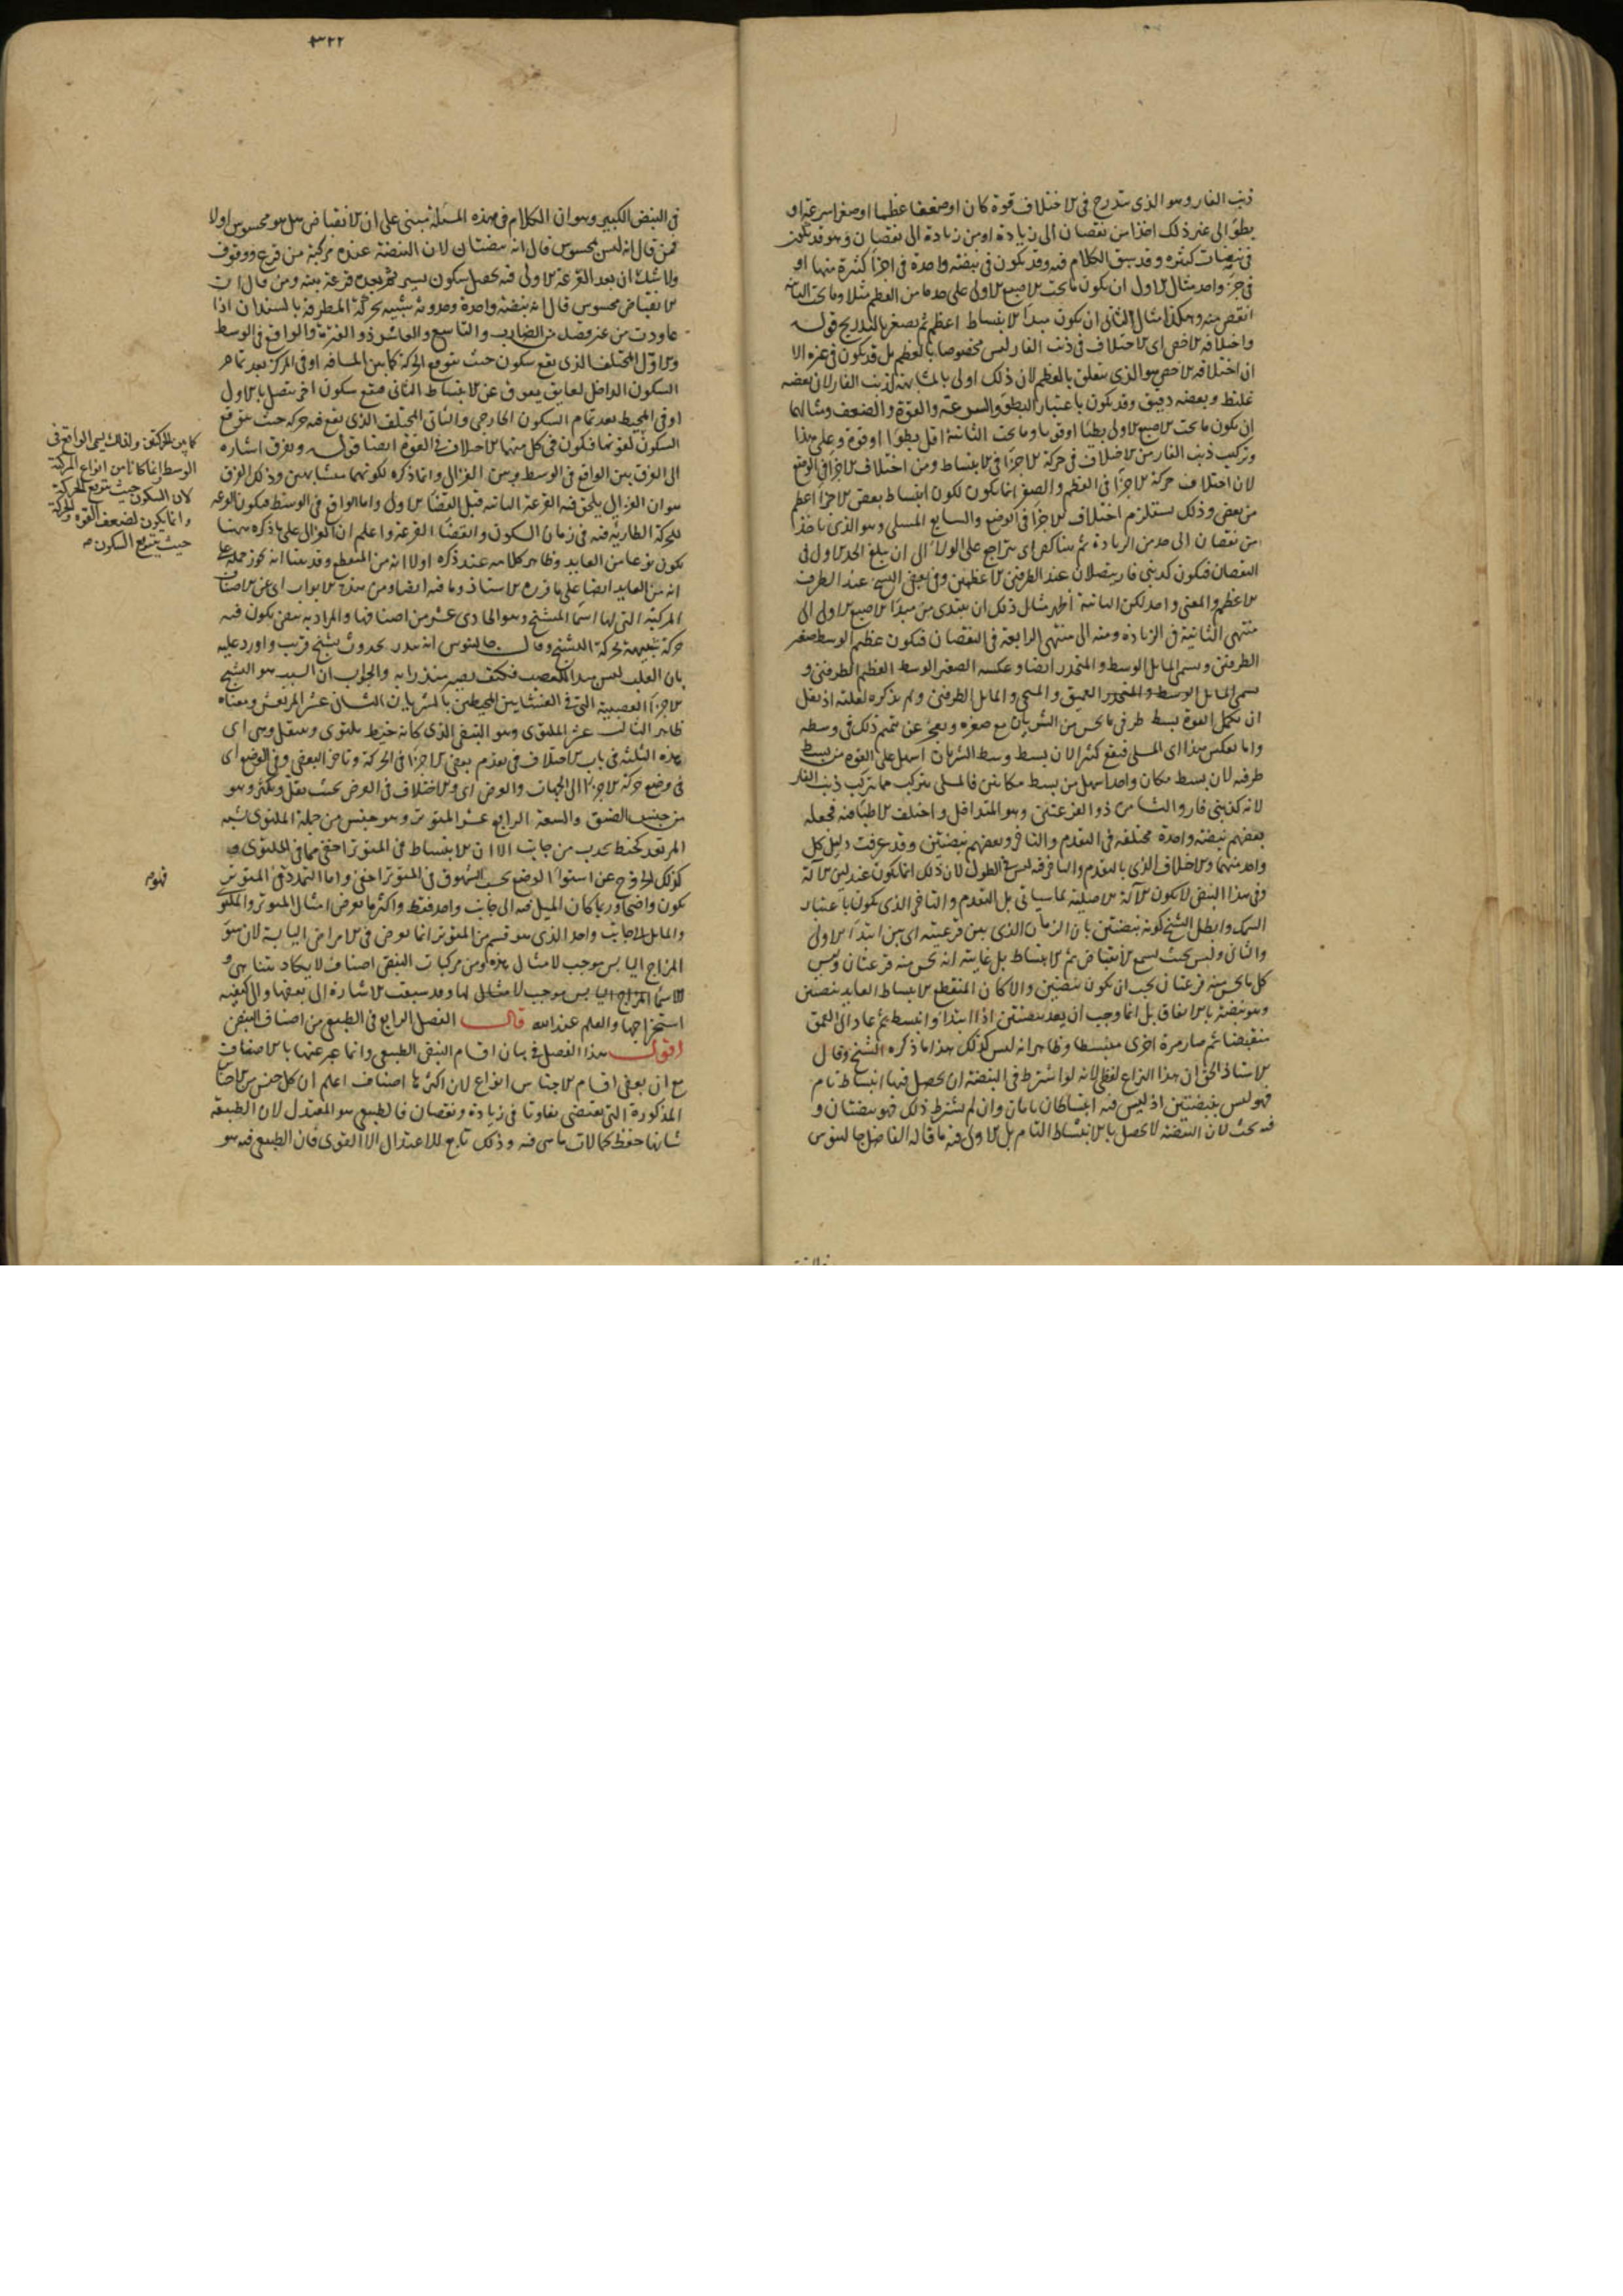 ذنب الفار وهو الذى يتدرج فى الاختلاف قوة كان او ضعفا عظما او صغرا سرعة او
بطؤا الى غير ذلك اخذا من نقصان الى زيادة او من زيادة الى نقصان وهو قد يكون
فى نبضات كثيره وقد سبق الكلام فيه وقد يكون فى نبضة واحدة فى اجزا كثيرة منها او
فى جز واحد مثال الاول ان يكون ما تحت الاصبع الاولى على حد ما من العظم مثلا وما تحت الثانيه
انقص منه وهكذا مثال الثانى ان يكون مبدا الانبساط اعظم ثم يصغر بالتدريج قوله
واختلافه الاخص اى الاختلاف فى ذنب الفار ليس مخصوصا بالعظم بل قد يكون فى غيره الا
ان اختلافه الاخص هو الذى يتعلق بالعظم لان ذلك اولى بالمشابهة لذنب الفار لان بعضه
غليظ وبعضه دقيق وقد يكون باعتبار البطؤ والسرعة والقوة والضعف ومثالهما
ان يكون ما تحت الاصبع الاولى بطئا او قويا وما تحت الثانية اقل بطؤا او قوة وعلى هذا
وتركيب ذنب الفار من الاختلاف فى حركة الاجزا فى الانبساط ومن اختلاف الاجزا فى الوضع
لان اختلاف حركة الاجزا فى العظم والصغر انما يكون لكون انبساط بعض الاجزا اعظم
من بعض وذلك يستلزم اختلاف الاجزا فى الوضع والسابع المسلى وهو الذى ياخذ
من نقصان الى حد من الزيادة ثم يتناكص اى يتراجع على الولا الى ان يبلغ الحد الاول فى
النقصان فيكون كذنبى فار يتصلان عند الطرفين الاعظمين وفى بعض النسخ عند الطرف
الاعظم والمعنى واحد لكن الثانية اظهر مثال ذلك ان يبتدى من مبدا الاصبع الاولى الى
منتهى الثانية فى الزيادة ومنه الى منتهى الرابعة فى النقصان فيكون عظيم الوسط صغير
الطرفين ويسمى المايل الوسط والمنحدر ايضا وعكسه الصغير الوسط العظيم الطرفين و
يسمى المايل الوسط والمنحدر العميق و والمايل الطرفين ولم يذكره لقلته اذ يقل
ان تكمل القوة بسط طرفى ما يحس من الشريان مع صغره ويعجز عن تتميم ذلك فى وسطه
واما بعكس هذا اى المسلى فيقع كثيرا لان بسط وسط الشريان اسهل على القوة من بسط
طرفيه لان بسط مكان واحد اسهل من بسط مكانين فالمسلى يتركب مما يتركب ذنب الفار
لانه كذنبى فار والثامن ذو القرعتين وهو المتداخل واختلف الاطبا فيه فجعله
بعضهم نبضة واحدة مختلفة فى التقدم والتاخر وبعضهم نبضتين وقد عرفت دليل كل
واحد منهما والاختلاف الذى بالتقدم والتاخر فيه ليس فى الطول لان ذلك انما يكون عند لين الآلة
وفى هذا النبض لا يكون الآلة الا صلبة لما سياتى بل التقدم والتاخر الذى يكون باعتبار
السمك وابطل الشيخ كونه نبضتين بان الزمان الذى بين قرعتيه اى بين ابتدا الاولى
والثانى وليس بحيث يسع لانقباض ثم الانبساط بل غايته ان يحس منه قرعتان وليس
كل ما يحس منه قرعتان يجب ان يكون نبضتين والا كان المنقطع الانبساط العايد نبضتين
وهو نبضة بالاتفاق بل انما وجب ان يعد نبضتين اذا ابتدا وانبسط ثم عاد الى العمق
منقبضا ثم صار مرة اخرى منبسطا وظاهر انه ليس كذلك هذا ما ذكره الشيخ وقال
الاستاذ الحق ان هذا النزاع لفظى لانه لو اشترط فى النبضة ان يحصل فيها انبساط تام
فهو ليس بنبضتين اذ ليس فيه انبساطان تامان وان لم يشترط ذلك فهو نبضتان و
فيه بحث لان النبضة لا تحصل بالانبساط التام بل الاولى فيه ما قاله الفاضل جالينوس
٣٢٢
فى النبض الكبير وهو ان الكلام فى هذه المسئلة مبنى على ان الانقباض هل هو محسوس او لا
فمن قال انه ليس بمحسوس قال انه نبضتان لان النبضة عنده مركبة من قرع ووقوف
ولا شك ان بعد القرعة الاولى فيه يحصل سكون يسير ثم بعده قرعة ومن قال ان
الانقباض محسوس قال انه نبضة واحدة وحدوثه شبيه بحركة المطرقة بالسندان اذا
عاودت من غير قصد من الضارب والتاسع والعاشر ذو الفترة والواقع فى الوسط
والاول المختلف الذى يقع سكون حيث يتوقع الحركة كما بين المسافه او فى المركز بعد تمام
السكون الداخل لعايق يعوق عن الانبساط الثانى فيقع سكون اخر متصل بالاول
او فى المحيط بعد تمام السكون الخارجى والثانى المختلف الذى يقع فيه حركة حيث يتوقع
السكون لقوتها فيكون فى كل منهما الاختلاف فى القوة ايضا قوله ويفرق اشاره
الى الفرق بين الواقع فى الوسط وبين الغزالى وانما ذكره لكونهما متشابهين وذلك الفرق
هو ان الغزالى يلحق فيه القرعة الثانيه قبل انقضا الاولى واما الواقع فى الوسط فيكون القرعة
للحركة الطارية فيه فى زمان السكون وانقضا القرعة واعلم ان الغزالى على ما ذكره ههنا
يكون نوعا من العايد وظاهر كلامه عند ذكره اولا انه من المنقطع وقد بينا انه يجوز حمله على
انه من العايد ايضا على ما قرره الاستاذ وما فيه ايضا ومن هذه الابواب اى من الاصناف
المركبة التى لها اسما المتشنج وهو الحادى عشر من اصنافها والمراد به نبض يكون فيه
حركة شبيهة بحركة التشنج وقال جالينوس انه ينذر بحدوث تشنج قريب واورد عليه
بان القلب ليس مبدا للعصب فكيف يصير منذرا به والجواب ان السبب هو التشنج
الاجزا العصبية التى فى الغشايين المحيطين بالشريان الثانى عشر المرتعش ومعناه
ظاهر الثالث عشر الملتوى وهو النبض الذى كانه خيط يلتوى وينفتل وهى اى
هذه الثلثة فى باب الاختلاف فى تقدم بعض الاجزا فى الحركة وتاخر البعض وفى الوضع اى
فى وضع حركة الاجزا الى الجهات والعرض اى والاختلاف فى العرض بحيث يقل ويكثر وهو
من جنس الضيق والسعة الرابع عشر المتوتر وهو جنس من جملة الملتوى شبه
المرتعد كخيط يجذب من جانب الا ان الانبساط فى المتوتر اخفى مما فى الملتوى و
كذلك الخروج عن استوا الوضع بحسب الشهوق فى المتوتر اخفى واما التمدد فى المتوتر
يكون واضحا وربما كان الميل فيه الى جانب واحد فقط واكثر ما يعرض امثال المتوتر والملتوى
والمايل الى جانب واحد الذى هو قسم من المتوتر انما يعرض فى الامراض اليابسة لان سوء
المزاج اليابس موجب لامثال هذه ومن مركبات النبض اصناف لا يكاد يتناهى و
لا اسما المزاج اليابس موجب لامثال لها وقد سبقت الاشارة الى بعضها والى كيفيه
استخراجها والعلم عند الله قال الفصل الرابع فى الطبيعى من اصناف النبض
اقول هذا الفصل فى بيان اقسام النبض الطبيعى وانما عبر عنها بالاصناف
مع ان بعض اقسام الاجناس انواع لان اكثرها اصناف اعلم ان كل جنس من الاجناس
المذكورة التى يقتضى تفاوتا فى زيادة ونقصان فالطبيعى هو المعتدل لان الطبيعة
شانها حفظ كمالات ما هى فيه وذلك تابع للاعتدال الا القوى فان الطبيعى فيه هو
كما بين الحركتين ولذلك يسمى الواقع فى
الوسط وانما كانا من انواع المركبة
لان السكون حيث يتوقع الحركة
انما يكون لضعف القوة والحركة
حيث يتوقع السكون صح